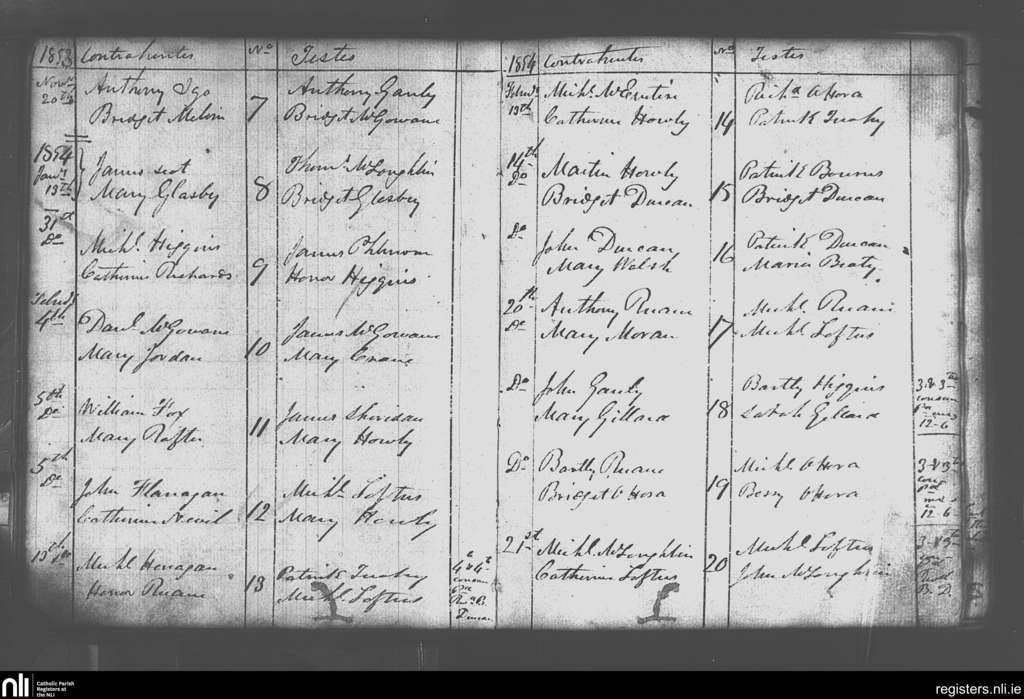 1853 Contrahentes No Testes
Novr Anthony Igo Anthony Ganly
20th Bridget Melvin 7 Bridget McGowane
1854
Jany James
13th Mary Glasby 8 Thoms McLoughlin
Bridget Glasby
31st
Do Michl Higgins James
Catherine Richards 9 Honor Higgins
Feby
4th Danl McGowane James McGowane
Mary Jordan 10 Mary Crane
5th
Do William Fox James Sheridan
Mary Rafter 11 Mary Howly
5th
Do John Flanagan Michl Loftus
Catherine Nevil 12 Mary Howly
13th Do Michl Henagan Patrick Tuohy
Honor Ruane 13 Michl Loftus
4th & 4th
consan
Duncan
1854 Contrahentes No Testes
Feby Michl McEntire Richd O Hora
13th Catherine Howly 14 Patrick Tuohy
14th
Do Martin Howly Patrick Bourns
Bridget Duncan 15 Bridget Duncan
Do John Duncan Patrick Duncan
Mary Walsh 16 Maria Beaty
20th Anthony Ruane Michl Ruane
Do Mary Moran 17 Michl Loftus
Do John Ganly Bartly Higgins
Mary Gillard 18 Sarah Gillard
3 & 3th
consan
12-6
Do Bartly Ruane Michl O Hora
Bridget O Hora 19 Bessy O Hora
3 & 3th
con
12 6
21st Michl McLoughlin Michl Loftus
Catherine Loftus 20 John McLoughlin
nli Catholic Parish
Registers at
the NLI
registers.nli.ie